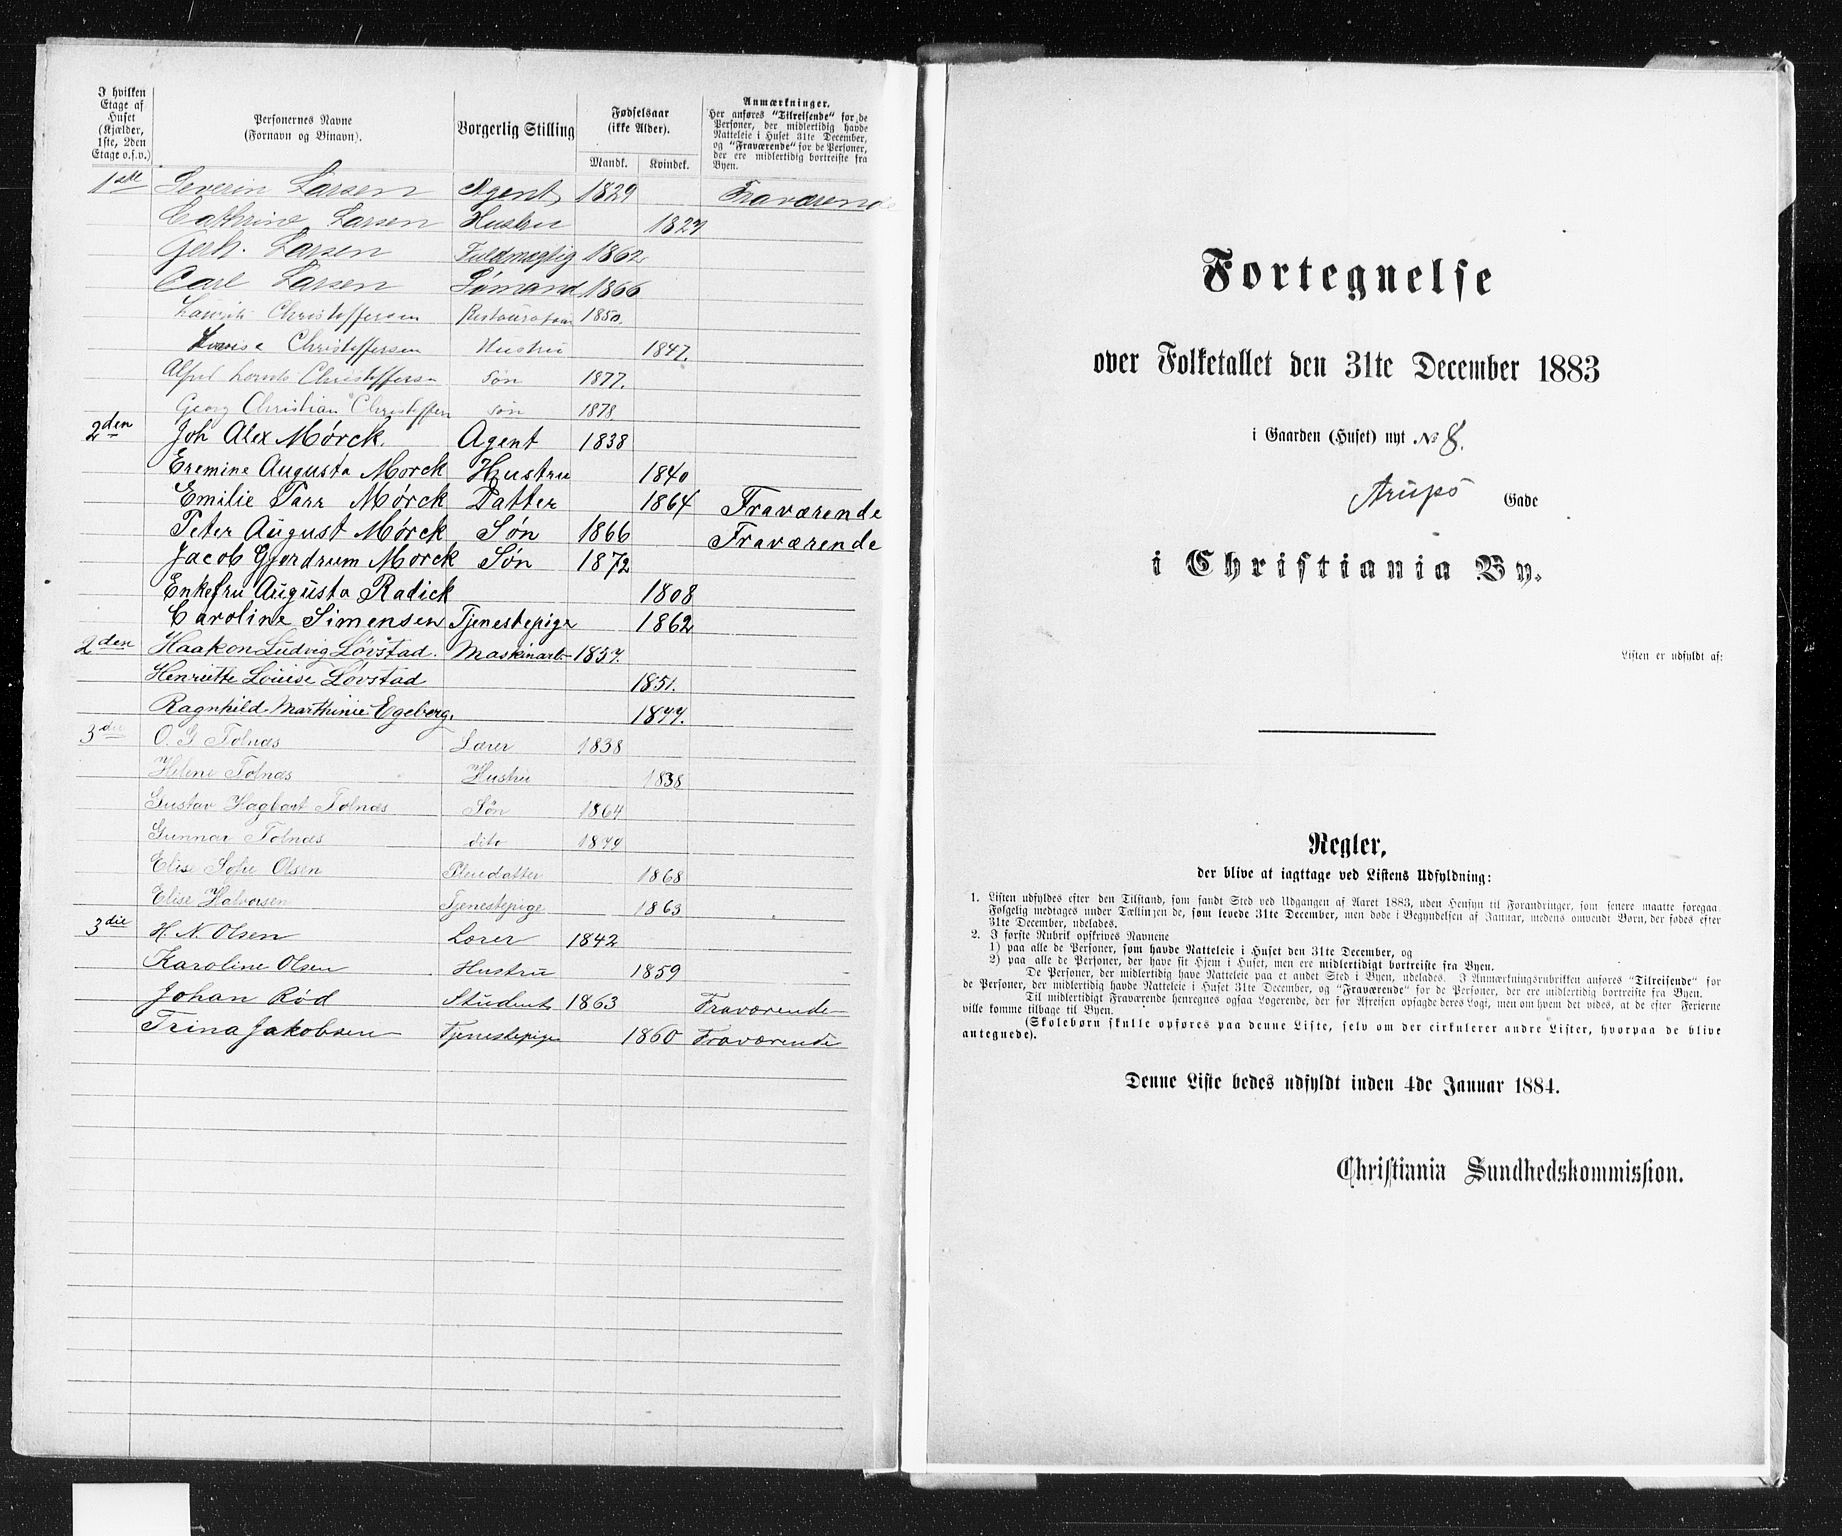 I hvilken Etage af Huset (Kjælder, 1ste, 2den Etage o.s.v.)
Personernes Navne (Fornavn og Binavn).
Borgerlig Stilling
Fødselsaar (ikke Alder).
Mandk. Kvindek.
Anmærkninger.
Her anføres "Tilreisende" for de Personer, der midlertidig havde Natteleie i Huset 31te December, og "Fraværende" for de Personer, der ere midlertidig bortreiste fra Byen.
1ste Severin Larsen Agent 1829 Fraværende
Cathrine Larsen Hustru 1829
Gerh. Larsen Fuldmægtig 1862
Carl Larsen Sømand 1866
Lauritz Christoffersen Restauratør 1850.
Lovisa Christoffersen Hustru 1847.
Christoffersen Søn 1877.
Georg Christian Christoffersen Søn 1878
2den Joh Alex Mørck. Agent 1838
Eremine Augusta Mørck Hustru 1840
Emilie Parr Mørck Datter 1864 Fraværende
Peter August Mørck Søn 1866 Fraværende
Jacob Gjerdrum Mørck Søn 1872
Enkefru Augusta Radick 1808
Caroline Simensen Tjenestepige 1862
2den Haakon Ludvig Løvstad. Maskinarb. 1857.
Henriette Louise Løvstad 1851.
Ragnhild Marthinie Egeberg. 1877.
3die O. G Tolnæs Lærer 1838
Helene Tolnæs Hustru 1838
Gustav Hagbart Tolnæs Søn 1864
Gunnar Tolnæs dito 1879
Elise Sofie Olsen Pleiedatter 1868
Elise Halvorsen Tjenestepige 1863
3die H. N. Olsen Lærer 1842
Karoline Olsen Hustru 1859
Johan Rød Student 1863 Fraværende
Trina Jakobsen Tjenestepige 1860 Fraværende
Fortegnelse
over Folketallet den 31te December 1883
i Gaarden (Huset) nyt No 8.
Arups Gade
i Christiania By.
Listen er udfyldt af:
Regler,
der blive at iagttage ved Listens Udfyldning:
1. Listen udfyldes efter den Tilstand, som fandt Sted ved Udgangen af Aaret 1883, uden Hensyn til Forandringer, som senere maatte foregaa.
Følgelig medtages under Tællingen de, som levede 31te December, men døde i Begyndelsen af Januar, medens omvendt Børn, der fødes efter
31te December, udelades.
2. I første Rubrik opskrives Navnene
1) paa alle de Personer, som havde Natteleie i Huset den 31te December, og
2) paa alle de Personer, der have sit Hjem i Huset, men ere midlertidigt bortreiste fra Byen.
De Personer, der midlertidig have Natteleie paa et andet Sted i Byen, udelades. I Anmærkningsrubrikken anføres "Tilreisende" for
de Personer, der midlertidig havde Natteleie i Huset 31te December, og "Fraværende" for de Personer, der ere midlertidig bortreiste fra Byen.
Til midlertidigt Fraværende henregnes ogsaa Logerende, der før Afreisen opsagde deres Logi, men om hvem det vides, at de efter Ferierne
ville komme tilbage til Byen.
(Skolebørn skulle opføres paa denne Liste, selv om der cirkulerer andre Lister, hvorpaa de blive
antegnede).
Denne Liste bedes udfyldt inden 4de Januar 1884.
Christiania Sundhedskommission.